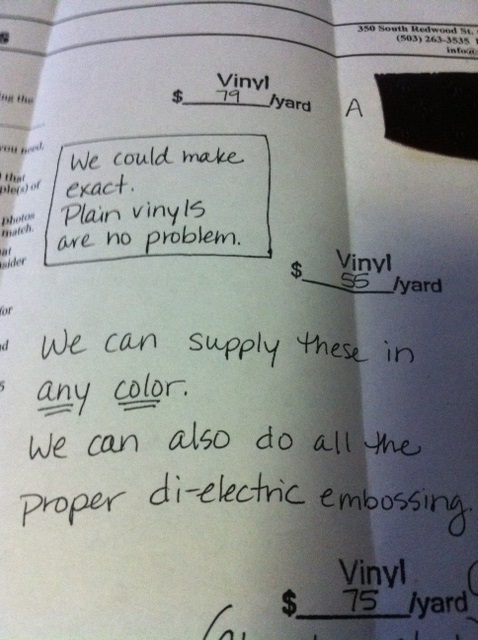 s
350 South Redwood St.
(503) 263-3535
info@
ing the
you need.
that
ple(s) of
photos
match.
at
sider
for
nd
s
Vinyl
$ 79 /yard
A
We could make
exact.
Plain vinyls
are no problem.
Vinyl
$ 55 /yard
We can supply these in
any color.
We can also do all the
proper di-electric embossing.
Vinyl
$ 75 /yard